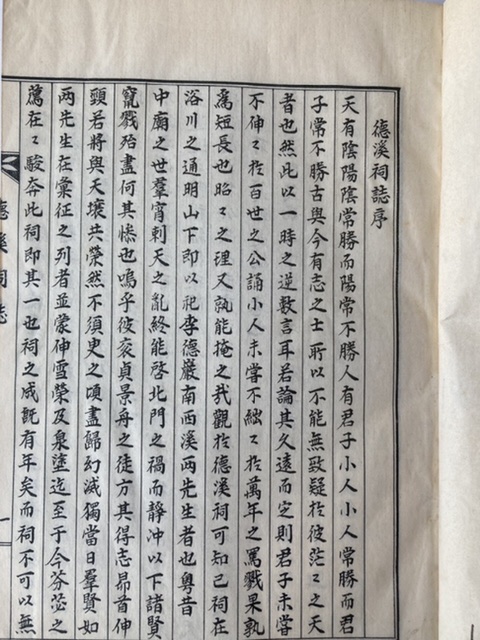 德溪祠誌序
天有陰陽陰常勝而陽常不勝人有君子小人小人常勝而君
子常不勝古與今有志之士所以不能無致疑於彼茫〻之天
者也然此以一時之逆數言耳若論其久遠而定則君子未嘗
不伸〻於百世之公誦小人未嘗不絀〻於萬年之罵戮果孰
爲短長也昭〻之理又孰能掩之哉觀於德溪祠可知已祠在
浴川之通明山下即以祀李德巖南西溪兩先生者也粤昔
中廟之世羣宵刺天之亂終能啓北門之禍而靜冲以下諸賢
竄戮殆盡何其憯也嗚乎彼袞貞景舟之徒方其得志昻首伸
頸若將與天壤共榮然不須臾之頃盡歸幻滅獨當日羣賢如
两先生在彙征之列者並蒙伸雪榮及泉塗迄至于今芬苾之
薦在〻駿奔此祠即其一也祠之成旣有年矣而祠不可以無
德溪祠誌
一